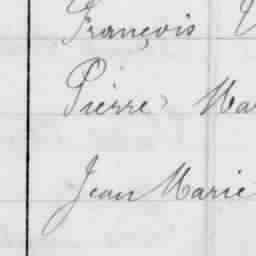 François
Pierre Mar
Jean Marie